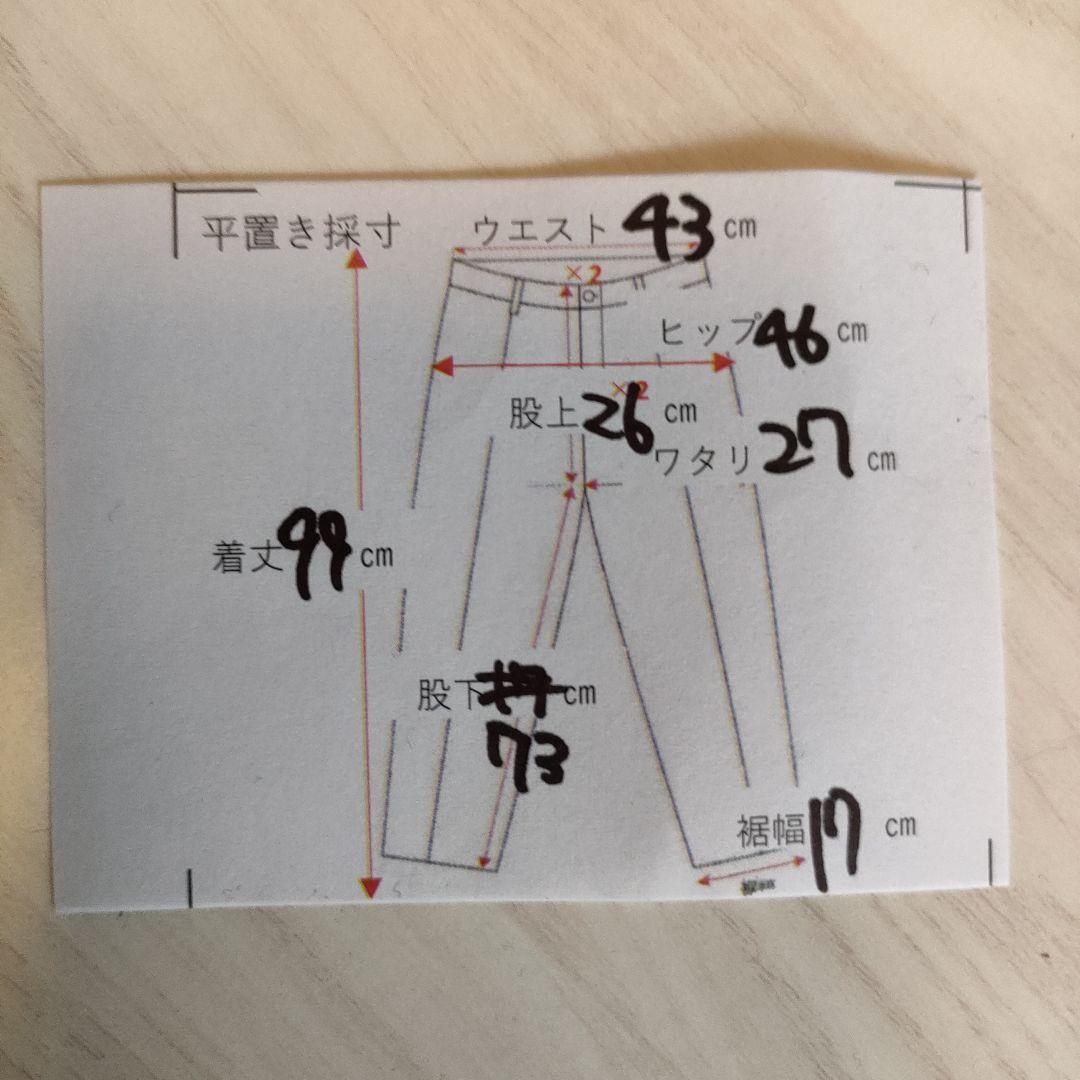 平置き採寸
ウエスト 43 cm
×2
ヒップ 46 cm
×2
股上 26 cm
ワタリ 27 cm
着丈 99 cm
股下 cm
73
裾幅 17 cm